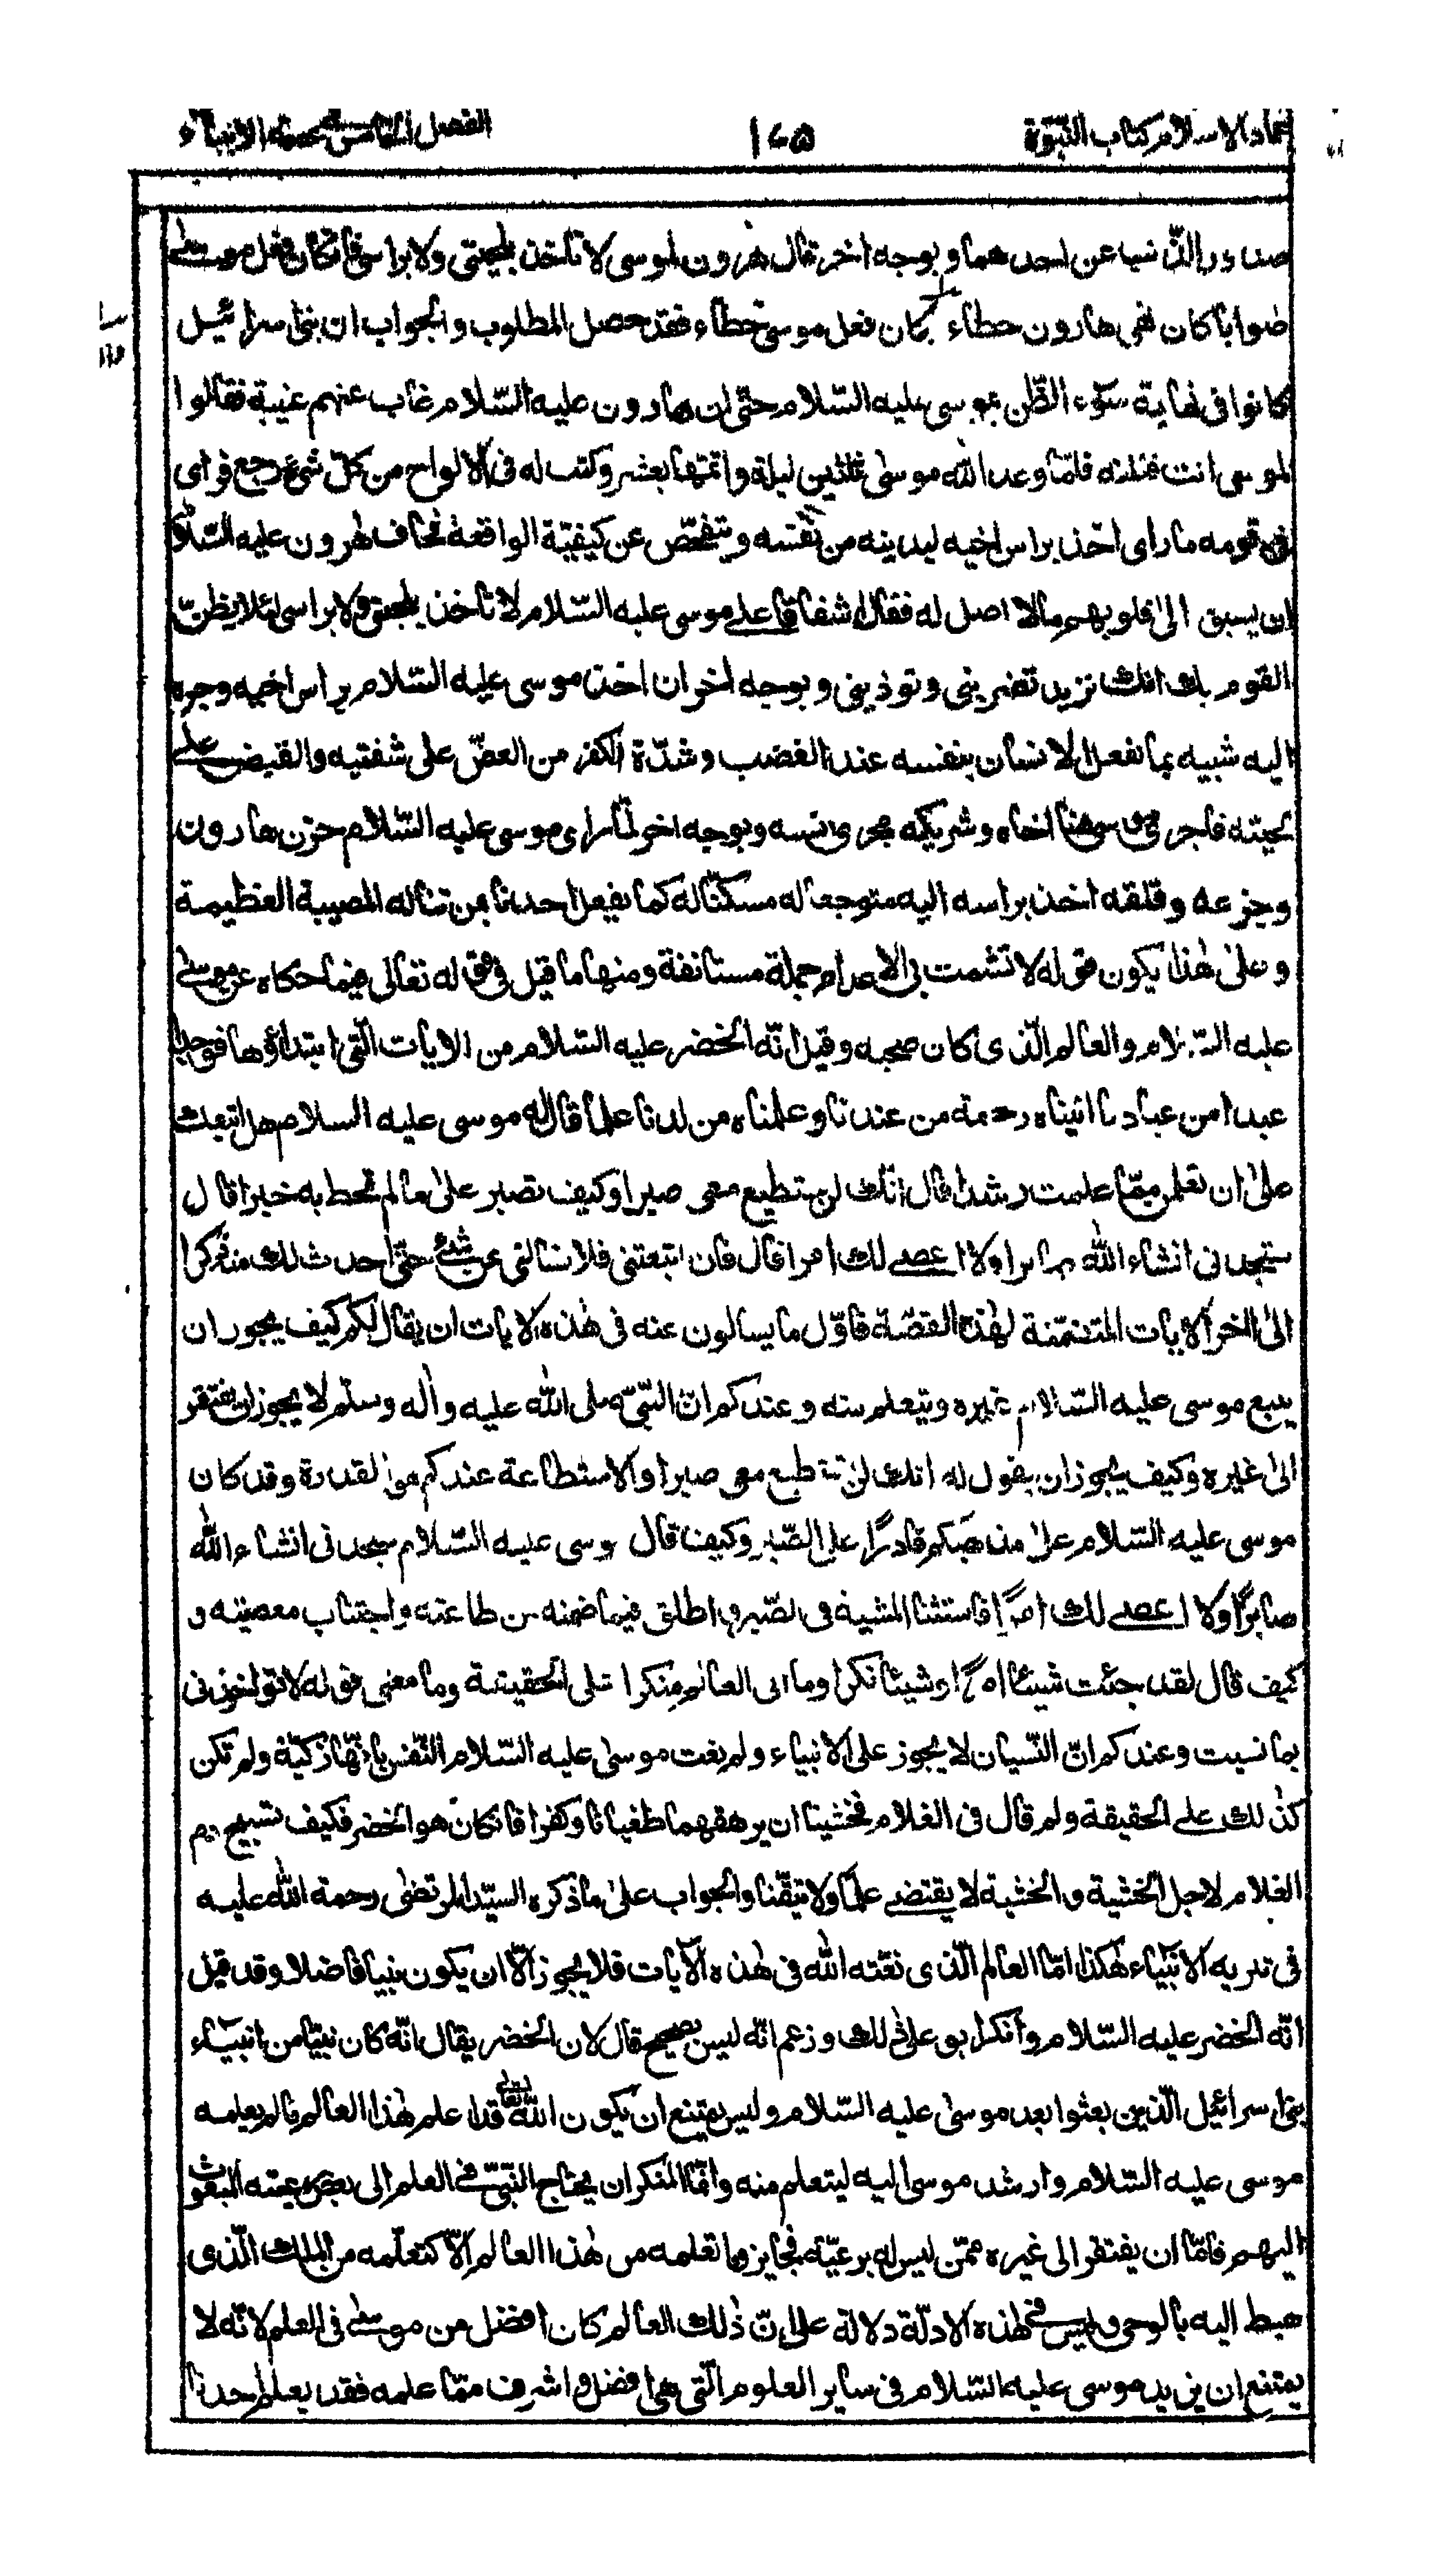 عماد الاسلام كتاب النبوّة ١٦٥ الفصل الخامس في عصمة الانبياء
صدور الذّنب عن احدهما وبوجه اخر قال هرون لموسى لا تاخذ بلحيتي ولا براسي فان كان فعل موسى
صوابا كان نهي هارون خطاء وان كان فعل موسى خطاء فقد حصل المطلوب والجواب ان بني اسرائيل
كانوا في نهاية سوء الظّن بموسى عليه السّلام حتّى ان هارون عليه السّلام غاب عنهم غيبة فقالوا
لموسى انت قتلته فلمّا وعد اللّه موسى ثلثين ليلة واتمّها بعشر وكتب له في الالواح من كلّ شئ رجع فراى
في قومه ما راى اخذ براس اخيه ليدنيه من نفسه ويتفحّص عن كيفيّة الواقعة فخاف هرون عليه السّلام
ان يسبق الى قلوبهم ما لا اصل له فقال اشفاقا على موسى عليه السّلام لا تاخذ بلحيتي ولا براسي لئلا يظنّ
القوم بك انك تريد تضربني وتوذيني وبوجه اخر ان اخذ موسى عليه السّلام براس اخيه وجره
اليه شبيه بما نفعل الانسان بنفسه عند الغضب وشدّة الفكر من العضّ على شفتيه والقبض على
لحيته فاجرى موسى هنا اخاه وشريكه مجرى نفسه وبوجه اخر لمّا راى موسى عليه السّلام حزن هارون
وجزعه وقلقه اخذ براسه اليه متوجعا له مسكّنا له كما يفعل احدنا بمن تناله المصيبة العظيمة
وعلى هٰذا يكون قوله لا تشمت بي الاعداء جملة مستانفة ومنها ما قيل في قوله تعالى فيما حكاه عن موسى
عليه السّلام والعالم الّذي كان صحبه وقيل انّه الخضر عليه السّلام من الايات الّتي ابتداؤها فوجدا
عبدا من عبادنا اتيناه رحمة من عندنا وعلمناه من لدنا علما قال له موسى عليه السلام هل اتبعك
على ان تعلمن ممّا علمت رشدا قال انّك لن تستطيع معي صبرا وكيف تصبر على ما لم تحط به خبرا قال
ستجدني انشاء اللّه صابرا ولا اعصى لك امرا قال فان اتبعتني فلا تسالني عن شئ حتّى احدث لك منه ذكرا
الى اخر الايات المتضمّنة لهٰذه القصّة فاوّل ما يسالون عنه في هٰذه الايات ان يقال لكم كيف يجوز ان
يتبع موسى عليه السّلام غيره ويتعلم منه وعندكم انّ النّبيّ صلى اللّه عليه واٰله وسلّم لا يجوز ان يفتقر
الى غيره وكيف يجوز ان يقول له انك لن تستطيع معي صبرا والاستطاعة عندكم هي القدرة وقد كان
موسى عليه السّلام على مذهبكم قادرًا على الصّبر وكيف قال موسى عليه السّلام ستجدني انشاء اللّه
صابرًا ولا اعصى لك امرًا فاستثنا المشية في الصّبر واطلق فيما ضمنه من طاعته واجتناب معصيته و
كيف قال لقد جئت شيئا امرًا وشيئا نكرا وما اتى العالم منكرا على الحقيقة وما معنى قوله لا تؤاخذني
بما نسيت وعندكم انّ النّسيان لا يجوز على الانبياء ولم نعت موسى عليه السّلام النّفس بانّها زكيّة ولم تكن
كذٰلك على الحقيقة ولم قال في الغلام فخشينا ان يرهقهما طغيانا وكفرا فان كان هو الخضر فكيف يستبيح دم
الغلام لاجل الخشية والخشية لا يقتضي علمًا ولا تيقّنا والجواب على ما ذكره السيّد المرتضى رحمة اللّه عليه
في تنزيه الانبيّاء هٰكذا امّا العالم الّذي نعته اللّه في هٰذه الاٰيات فلا يجوز الّا ان يكون نبيا فاضلا وقد قيل
انّه الخضر عليه السّلام وانكر ابو علي ذٰلك وزعم انّه ليس بصحيح قال لان الخضر يقال انّه كان نبيّا من انبيّاء
بني اسرائيل الّذين بعثوا بعد موسى عليه السّلام وليس يمتنع ان يكون اللّه تعالى قد اعلم هٰذا العالم ما لم يعلمه
موسى عليه السّلام وارشد موسى اليه ليتعلم منه وانّما المنكر ان يحتاج النّبيّ في العلم الى بعض رعيته المبعوث
اليهم فامّا ان يفتقر الى غيره ممّن ليس له برعيّة فجايز وما تعلمه من هٰذا العالم الّا كتعلّمه من الملك الّذي
هبط اليه بالوحي وليس في هٰذه الادلّة دلالة على انّ ذٰلك العالم كان افضل من موسى في العلم لانّه لا
يمتنع ان يزيد موسى عليه السّلام في ساير العلوم الّتي هي افضل واشرف ممّا علمه فقد يعلم احدنا